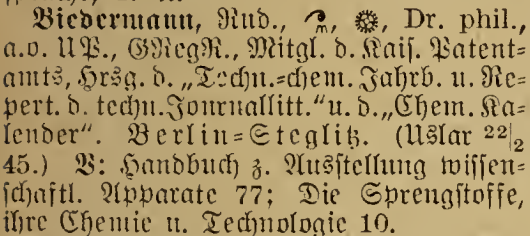 Biedermann, Rud., Dr. phil.,
a.o. UP., GRegR., Mitgl. d. Kais. Patent-
amts, Hrsg. d. „Techn.=chem. Jahrb. u. Re-
pert. d. techn. Journallitt." u. d. „Chem. Ka-
lender". Berlin=Steglitz. (Uslar 22|2
45.) V: Handbuch z. Ausstellung wissen-
schaftl. Apparate 77; Die Sprengstoffe,
ihre Chemie u. Technologie 10.